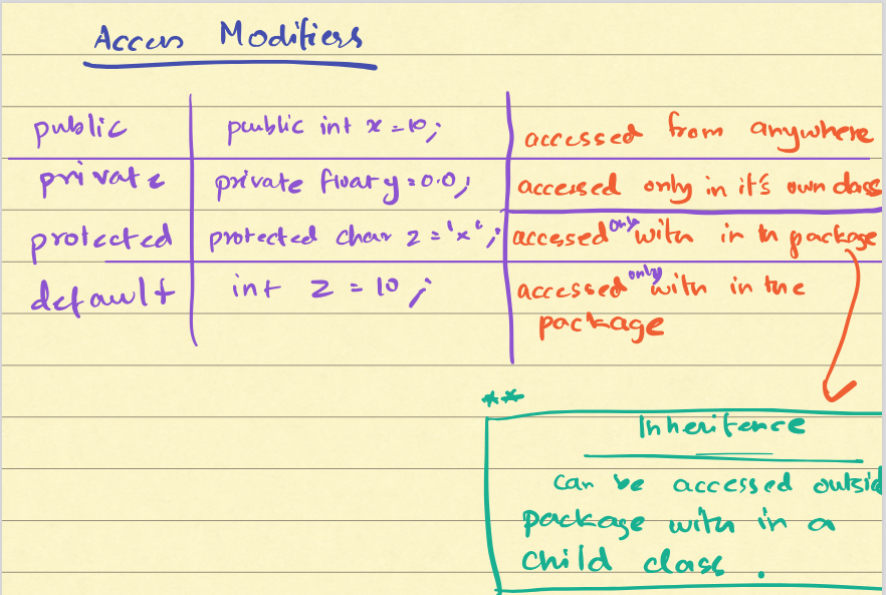 Access Modifiers
public public int x = 10; accessed from anywhere
private private float y = 0.0; accessed only in it's own class
protected protected char z = 'x'; accessed only with in th package
default int z = 10; accessed only with in the
package
**
Inheritence
can be accessed outsid
package with in a
child class.